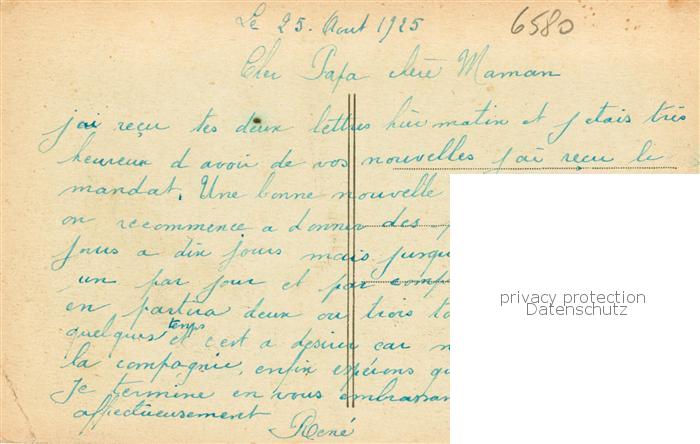 Le 25. Aout 1925
6580
Cher Papa chère Maman
j ai reçu tes deux lettres hier matin et j etais très
heureux d avoir de vos nouvelles j ai reçu le
mandat. Une bonne nouvelle
on recommence a donner des
jours a dix jours mais jusqu
un par jour et par comp
en partira deux ou trois
quelques temps et c est a desirer car
la compagnie, enfin espérons
Je termine en vous embrassan
affectueusement
René
privacy protection
Datenschutz